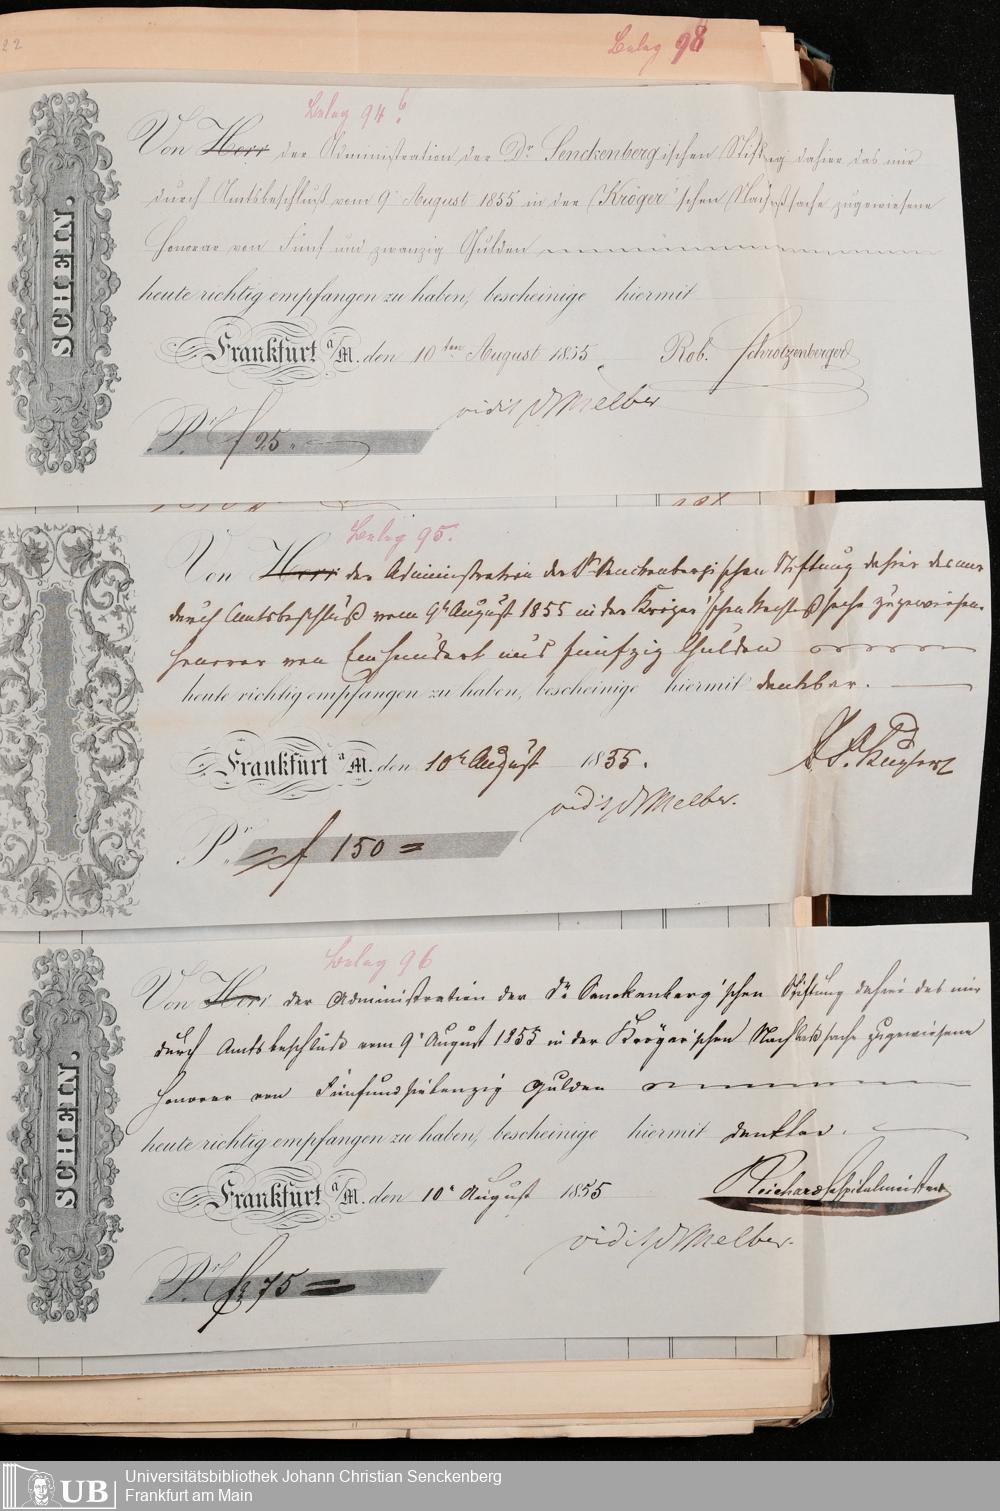 22
Beleg 98
Beleg 94 b.
SCHEIN.
Von Herr der Administration der Dr. Senckenbergischen Stiftg dahier das mir
durch Amtsbeschluß vom 9t August 1855 in der Kröger'schen Nachlaßsache zugewiesene
Honorar von Fünf und zwanzig Gulden
heute richtig empfangen zu haben, bescheinige hiermit
Frankfurt a/M. den 10ten August 1855. Rob. Schrotzenberger
vidit Dr Melber
Pr. f 25.
Beleg 95.
Von Herr der Administration der Dr Senckenbergischen Stiftung dahier das mir
durch Amtsbeschluß vom 9t August 1855 in der Kröger'schen Nachlaßsache zugewiesene
Honorar von Einhundert und fünfzig Gulden
heute richtig empfangen zu haben, bescheinige hiermit dankbar.
Frankfurt a/M. den 10t August 1855.
vidit Dr Melber.
Pr. f 150 =
Beleg 96
SCHEIN.
Von Herr der Administration der Dr Senckenberg'schen Stiftung dahier das mir
durch Amtsbeschluß vom 9t August 1855 in der Kröger'schen Nachlaßsache zugewiesene
Honorar von Fünfundsiebenzig Gulden
heute richtig empfangen zu haben, bescheinige hiermit dankbar.
Frankfurt a/M. den 10t August 1855 Reichard Hospitalmeister
vidit Dr Melber.
Pr. f 75 =
UB
Universitätsbibliothek Johann Christian Senckenberg
Frankfurt am Main